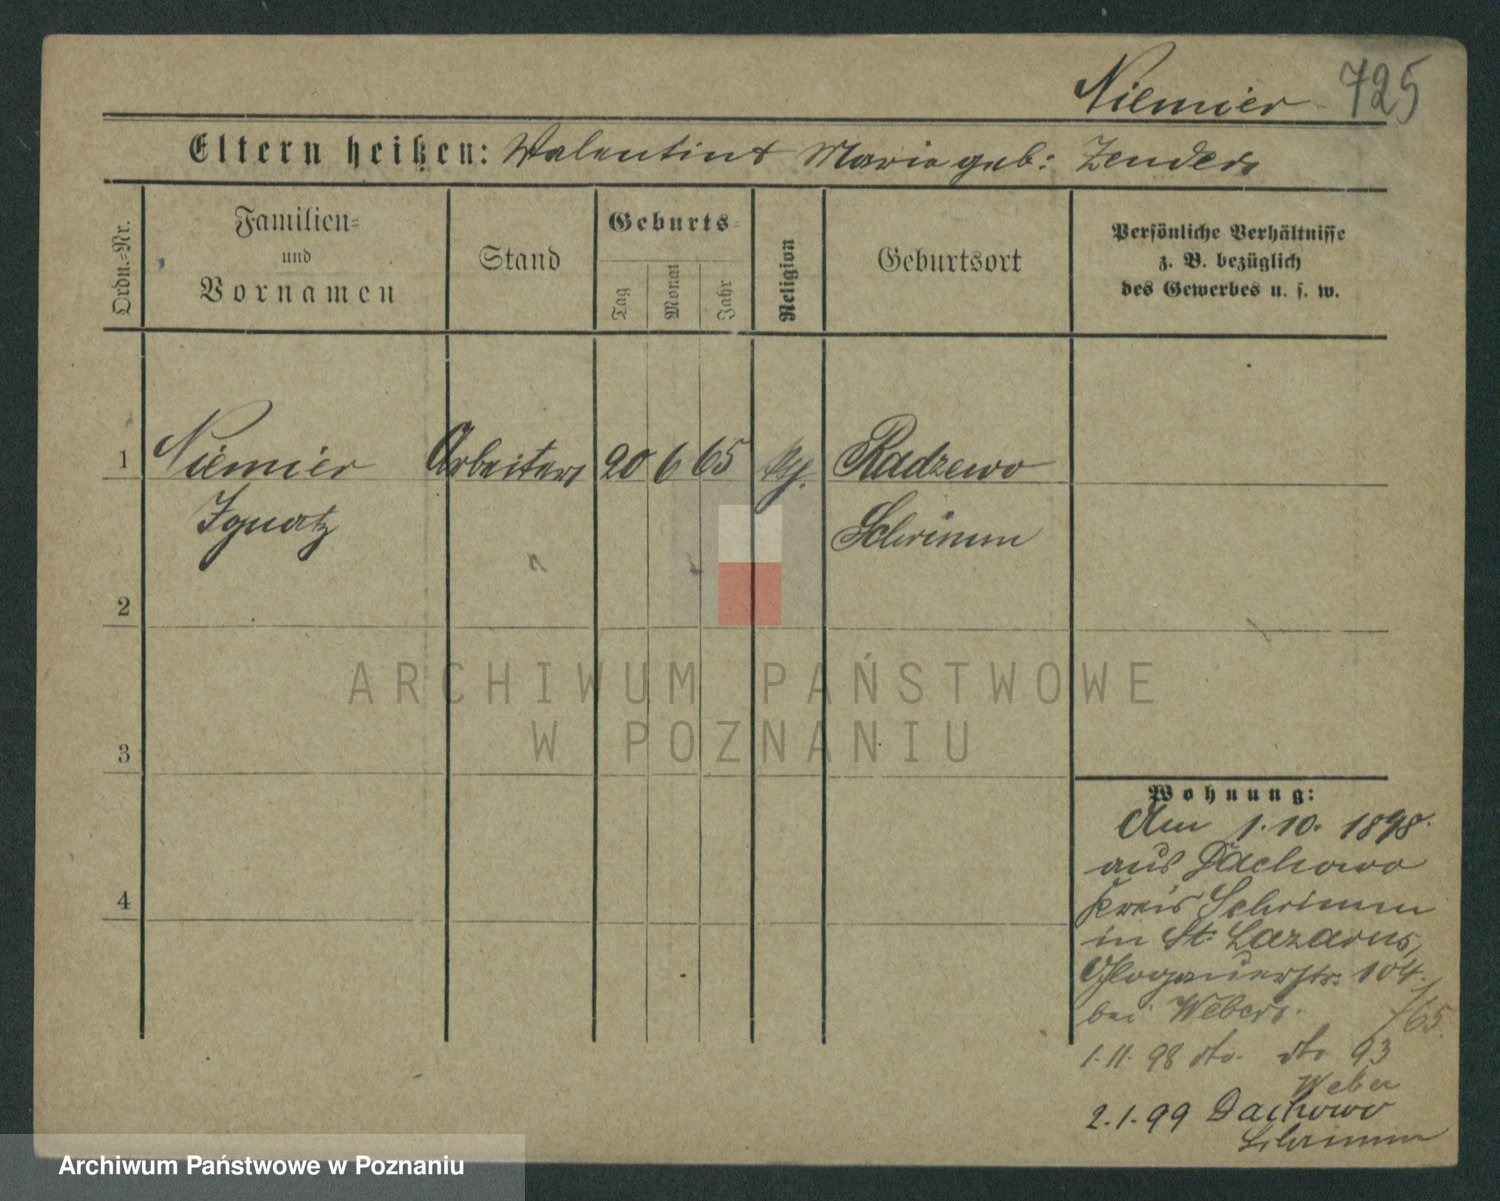 Niemier 725
Eltern heißen: Valentin & Maria geb: Zender
Ordn.-Nr.
Familien-
und
Vornamen
Stand
Geburts-
Tag
Monat
Jahr
Religion
Geburtsort
Persönliche Verhältnisse
z. B. bezüglich
des Gewerbes u. s. w.
1 Niemier Arbeiter 20 6 65 kth. Radzewo
Ignatz Schrimm
2
ARCHIWUM PAŃSTWOWE
W POZNANIU
3
4
Wohnung:
Am 1.10. 1898.
aus Dachowo
Kreis Schrimm
in St. Lazarus,
Glogauerstr. 104.
bei Weber.
/65.
1.11.98 dto. dto 93
Weber
2.1.99 Dachowo
Schrimm
Archiwum Państwowe w Poznaniu